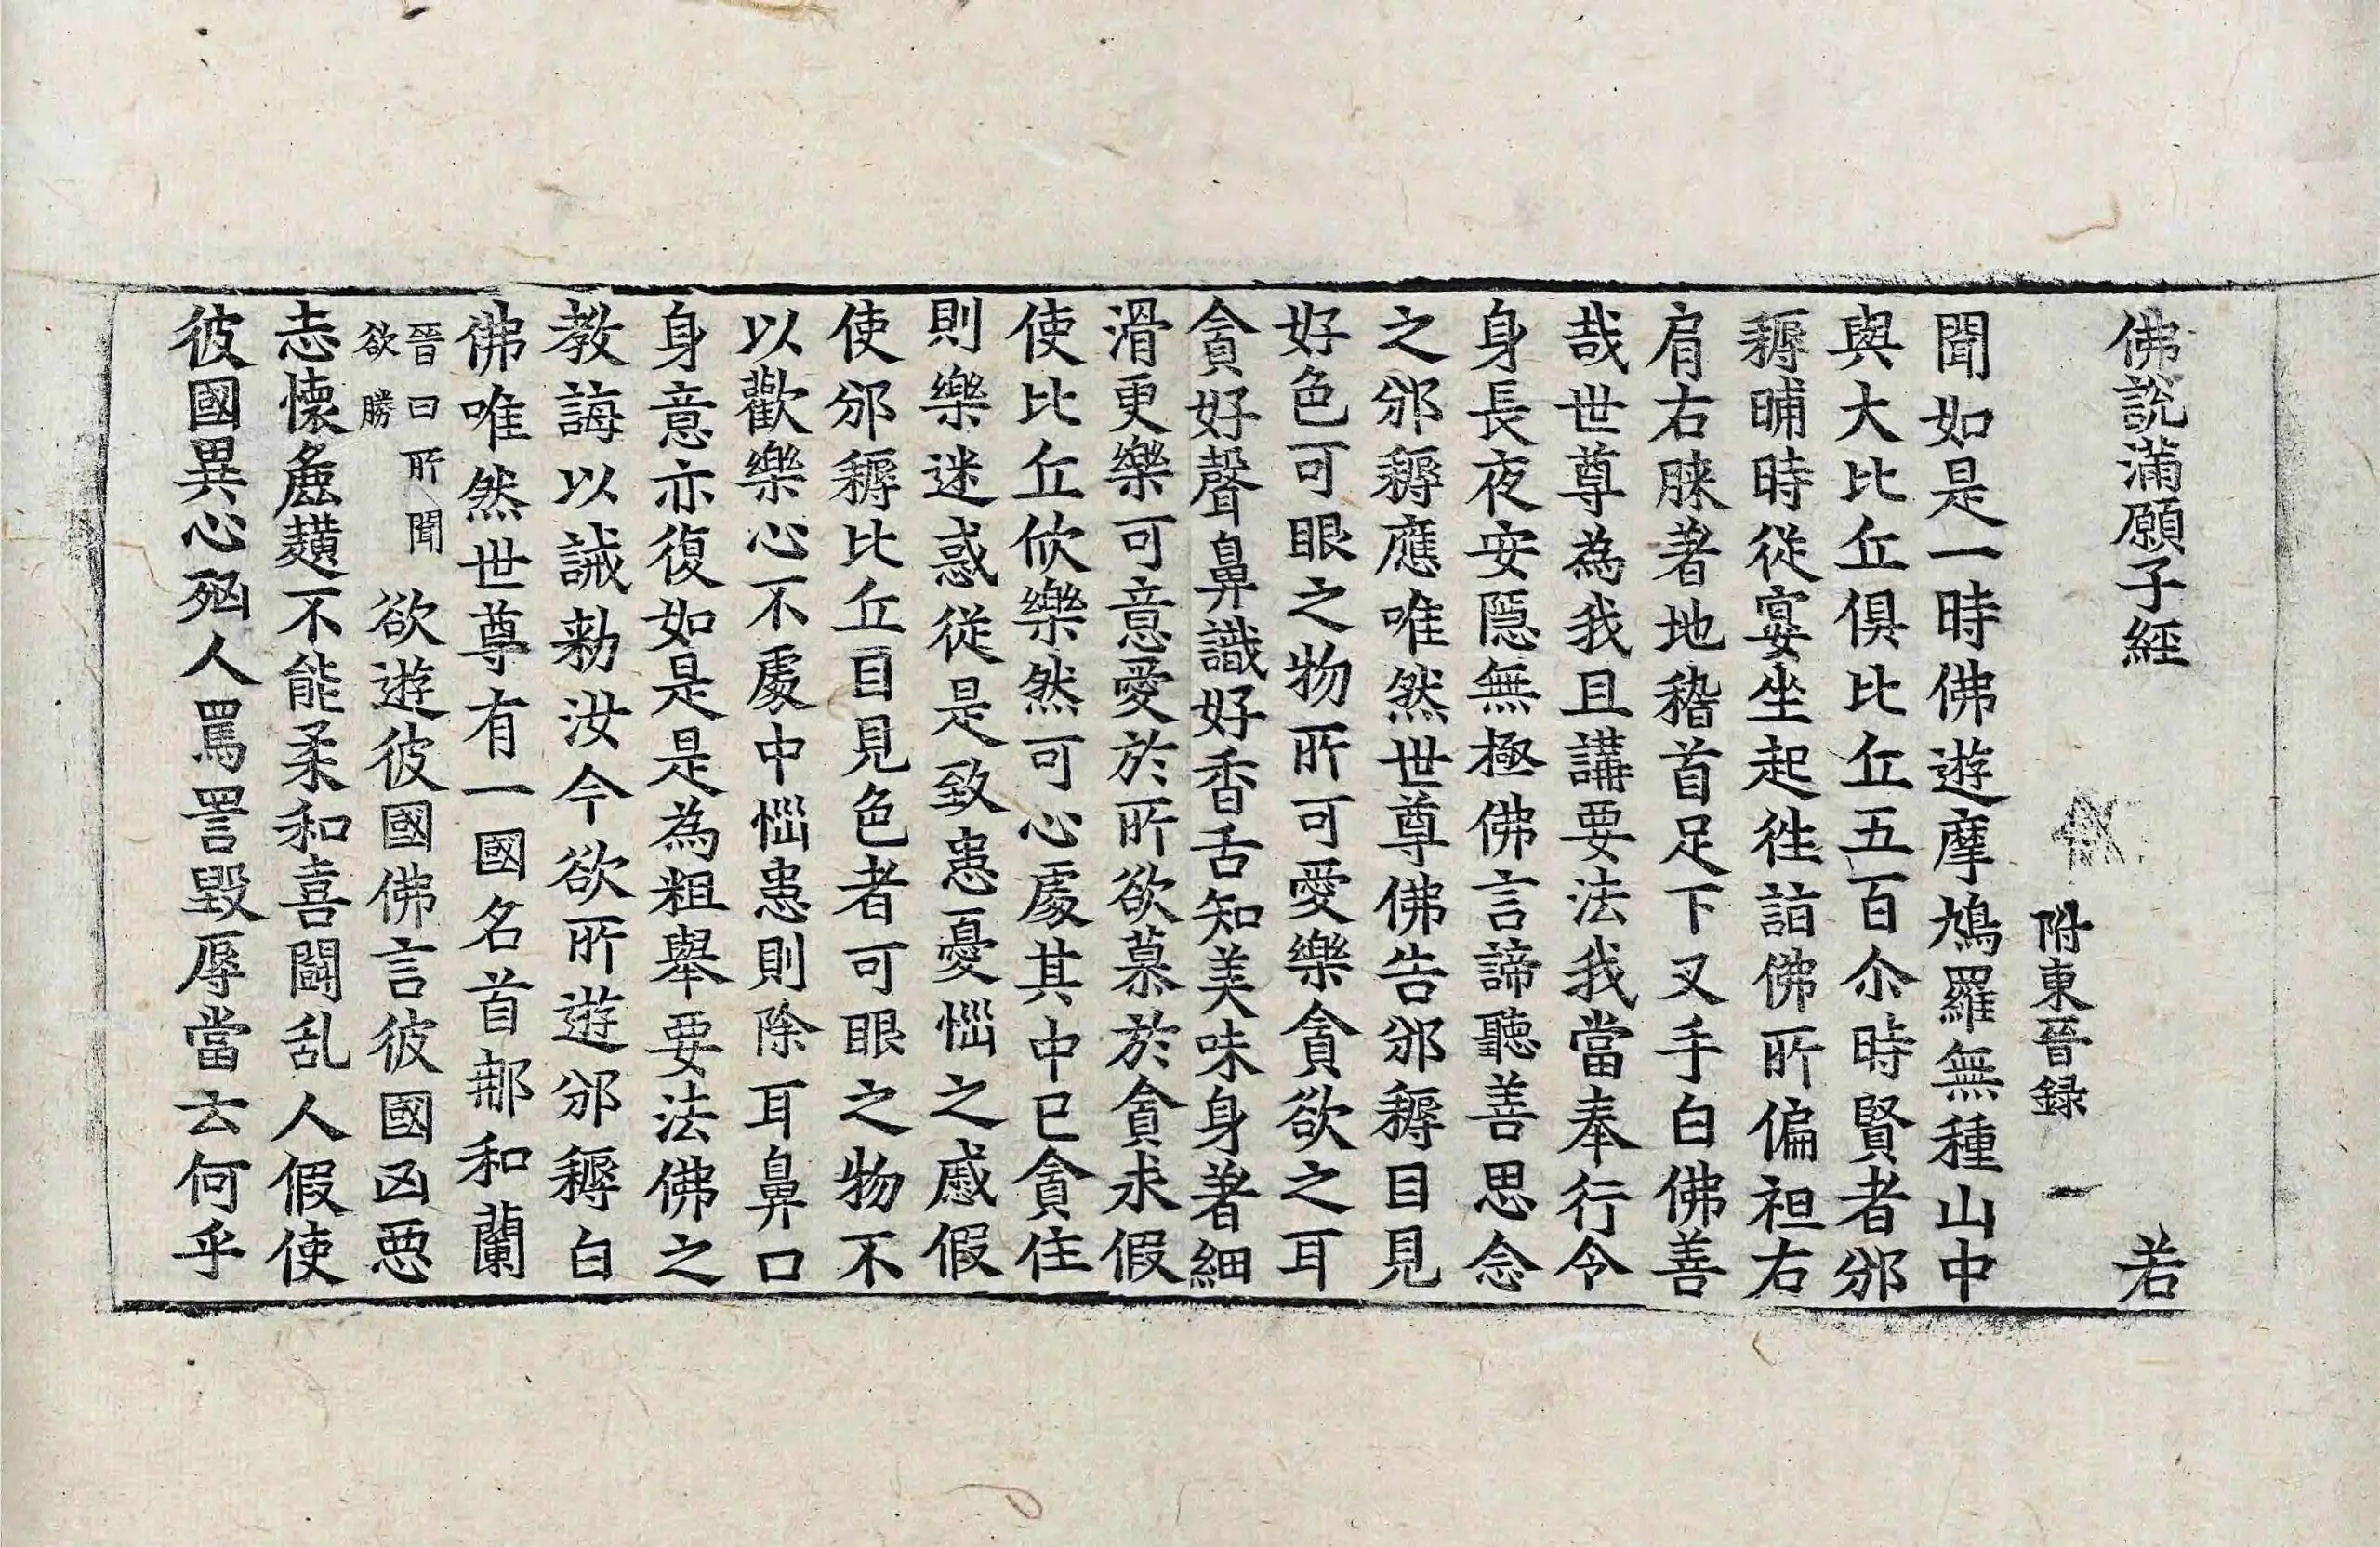 佛說滿願子經 若
附東晉録 一
聞如是一時佛遊摩鳩羅無種山中
與大比丘俱比丘五百尒時賢者邠
耨晡時從宴坐起徃詣佛所偏袒右
肩右膝著地稽首足下叉手白佛善
哉世尊為我且講要法我當奉行令
身長夜安隱無極佛言諦聽善思念
之邠耨應唯然世尊佛告邠耨目見
好色可眼之物所可愛樂貪欲之耳
貪好聲鼻識好香舌知美味身著細
滑更樂可意愛於所欲慕於貪求假
使比丘欣樂然可心處其中已貪住
則樂迷惑從是致患憂惱之慼假
使邠耨比丘目見色者可眼之物不
以歡樂心不處中惱患則除耳鼻口
身意亦復如是是為粗舉要法佛之
教誨以誡勑汝今欲所遊邠耨白
佛唯然世尊有一國名首那和蘭
晉曰所聞
欲勝
欲遊彼國佛言彼國凶惡
志懷麁獷不能柔和喜鬪乱人假使
彼國異心㐫人罵詈毀辱當云何乎